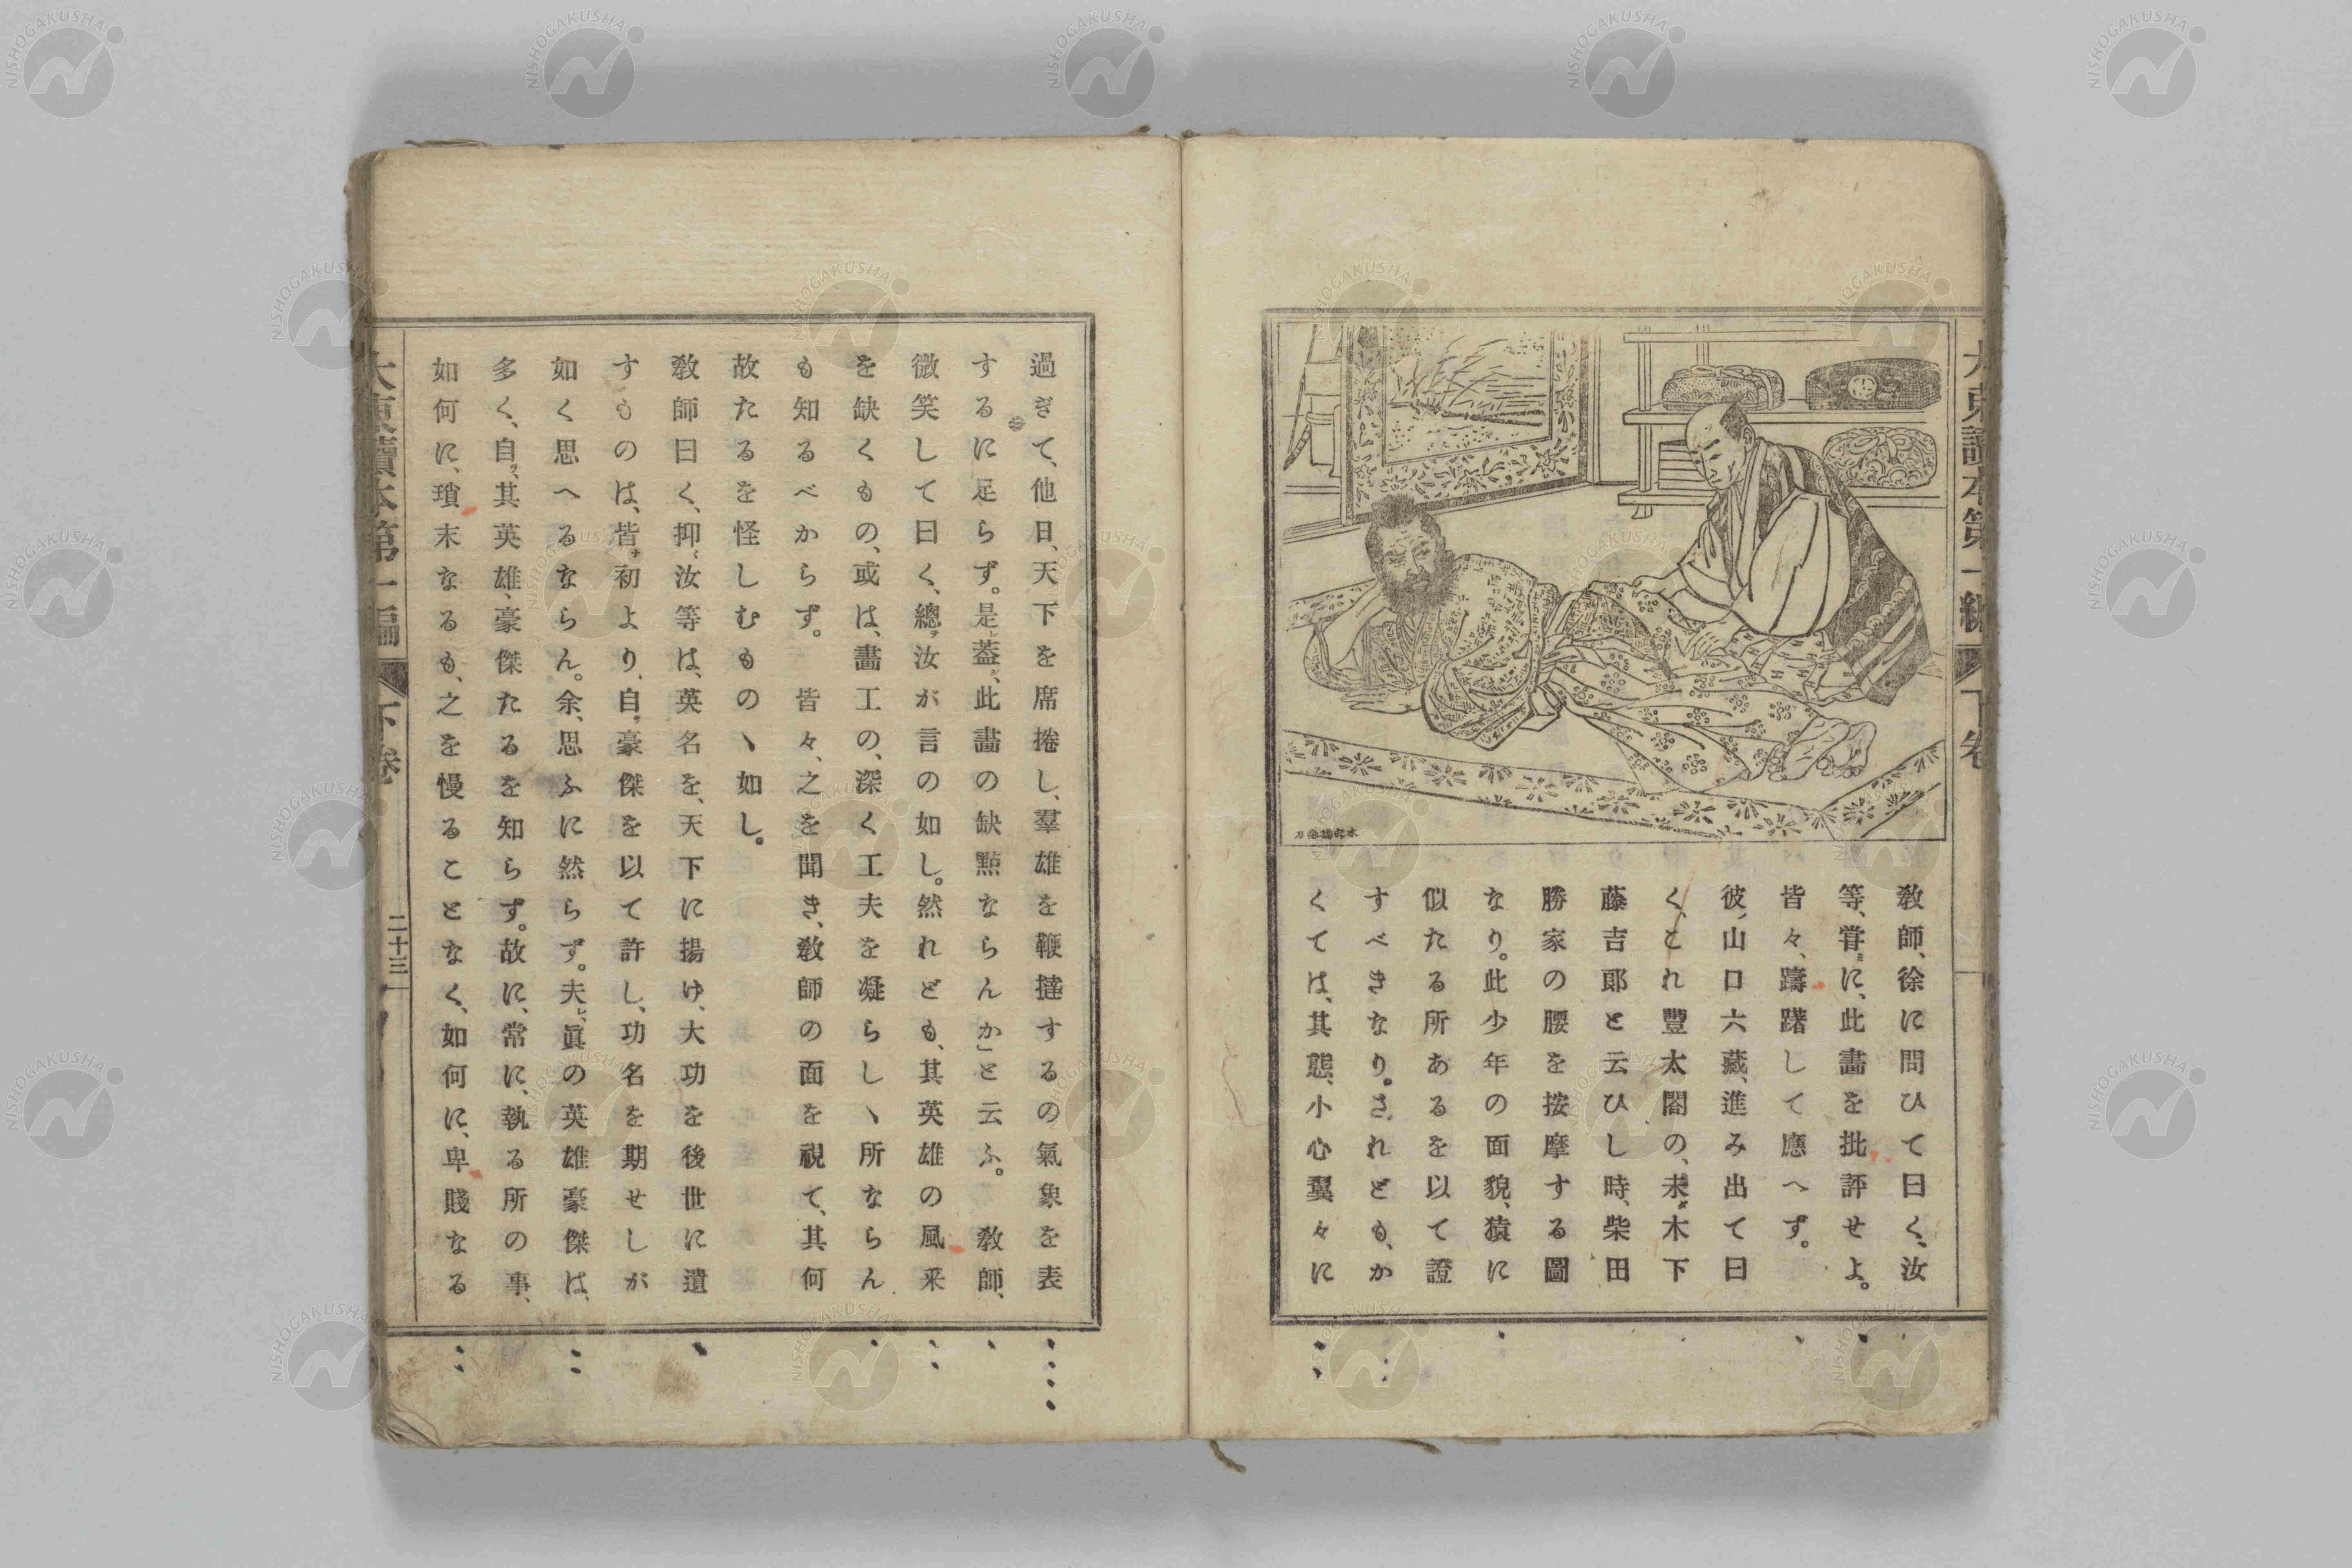 大東讀本第一編 下卷
敎師、徐に問ひて曰く、汝
等、甞に、此畫を批評せよ。
皆々、躊躇して應へず。
彼、山口六藏、進み出て曰
く、これ豐太閤の、未木下
藤吉郎と云ひし時、柴田
勝家の腰を按摩する圖
なり。此少年の面貌、猿に
似たる所あるを以て證
すべきなり。されども、か
くては、其態、小心翼々に
過ぎて、他日、天下を席捲し、羣雄を鞭撻するの氣象を表
するに足らず。是蓋、此畫の缺㸃ならんか」と云ふ。 敎師、
微笑して曰く、總汝が言の如し。然れども、其英雄の風采
を缺くもの、或は、畵工の、深く工夫を凝らしゝ所ならん
も知るべからず。 皆々、之を聞き、敎師の面を視て、其何
故たるを怪しむものゝ如し。
敎師曰く、抑汝等は、英名を、天下に揚け、大功を後世に遺
すものは、皆初より、自豪傑を以て許し、功名を期せしが
如く思へるならん。余、思ふに然らず。夫、眞の英雄豪傑は、
多く、自其英雄、豪傑たるを知らず。故に、常に、執る所の事、
如何に、瑣末なるも、之を慢ることなく、如何に、卑賤なる
大東讀本第一編 下卷 二十三
NISHOGAKUSHA